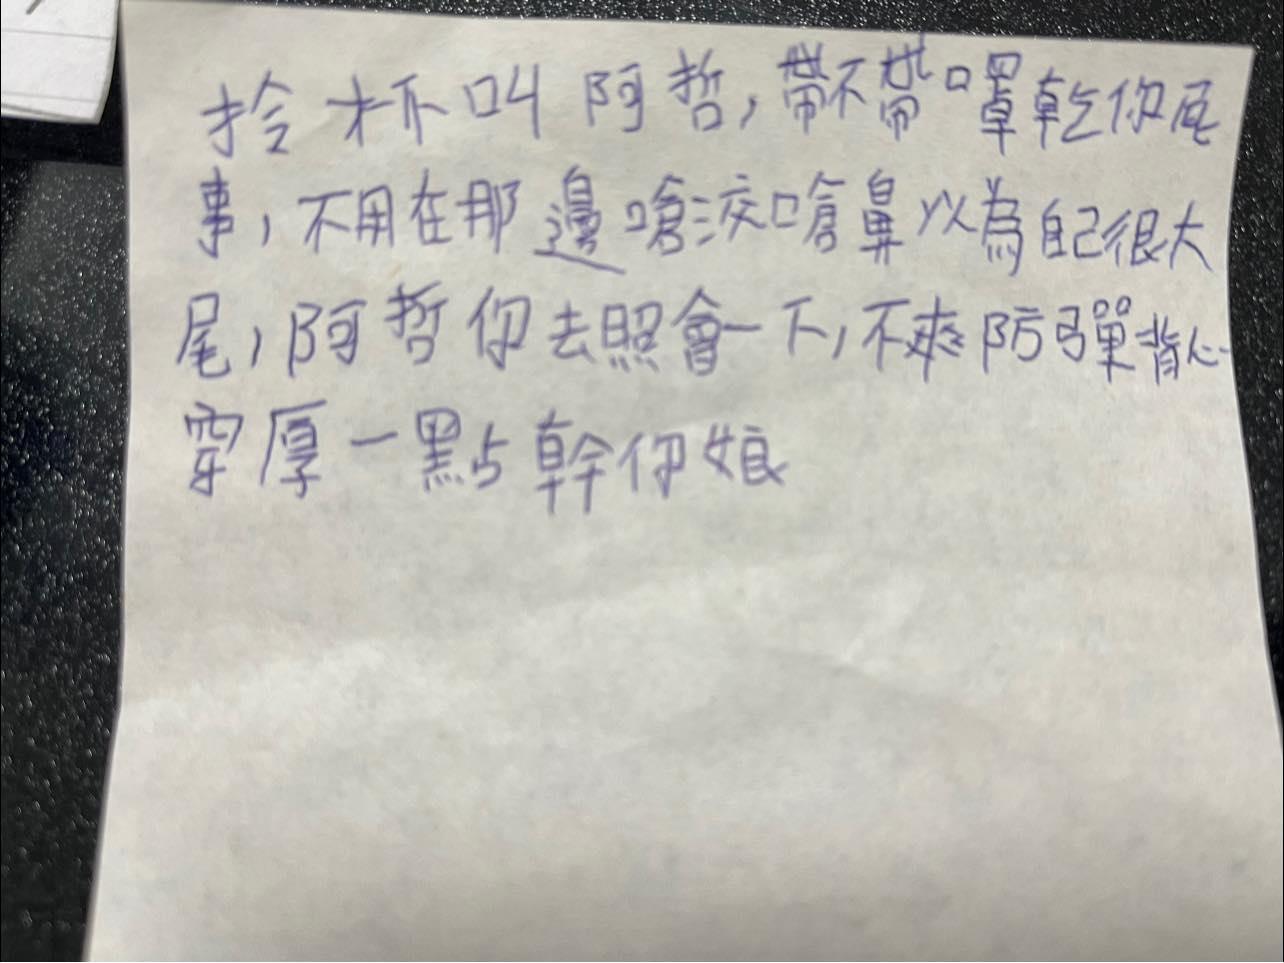 拎杯叫阿哲,帶不帶口罩乾你屁
事,不用在那邊嗆淚嗆鼻以為自己很大
尾,阿哲你去照會一下,不來防彈背心
穿厚一點幹你娘